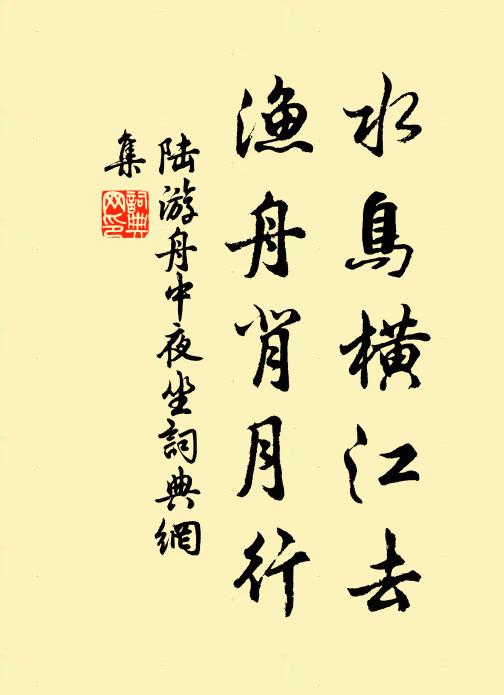 水鳥橫江去
漁舟背月行
陸游舟中夜坐詞典網
集
詞典
网印